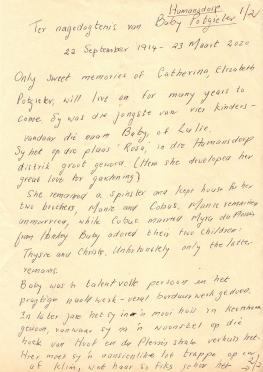 Humansdorp
1/2
Ter nagedagtenis van Baby Potgieter
22 September 1914 - 23 Maart 2020
Only sweet memories of Catherina Elizabeth
Potgieter, will live on for many years to
come. Sy was die jongste van vier kinders -
vandaar die naam Baby, of Lulie.
Sy het op die plaas 'Rosa', in die Humansdorp
distrik groot geword. (Here she developed her
great love for gardening)
She remained a spinster and kept house for her
two brothers, Manie and Cobus. Manie remained
unmarried, while Cobus married Myra du Plessis
from Hankey. Baby adored their two children:
Thysie and Christo. Unfortunately only the latter
remains.
Baby was 'n talentvolle persoon en het
pragtige naaldwerk - veral borduurwerk gedoen.
In later jare het sy in 'n mooi huis in
gewoon, vanwaar sy na 'n woonstel op die
hoek van Hoof en du Plessis straat verhuis het.
Hier moes sy 'n aansienlike lot trappe op en
af klim, wat haar so fiks gehou het